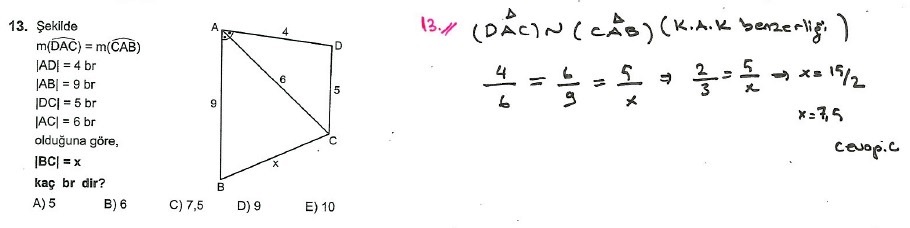 13. Şekilde
m(DAC) = m(CAB)
|AD| = 4 br
|AB| = 9 br
|DC| = 5 br
|AC| = 6 br
olduğuna göre,
|BC| = x
kaç br dir?
A) 5 B) 6 C) 7,5 D) 9 E) 10
A
4
D
6
9
5
C
x
B
13.// (DAC) ~ (CAB) (K.A.K benzerliği)
4/6 = 6/9 = 5/x ⇒ 2/3 = 5/x ⇒ x = 15/2
x = 7,5
cevap.C